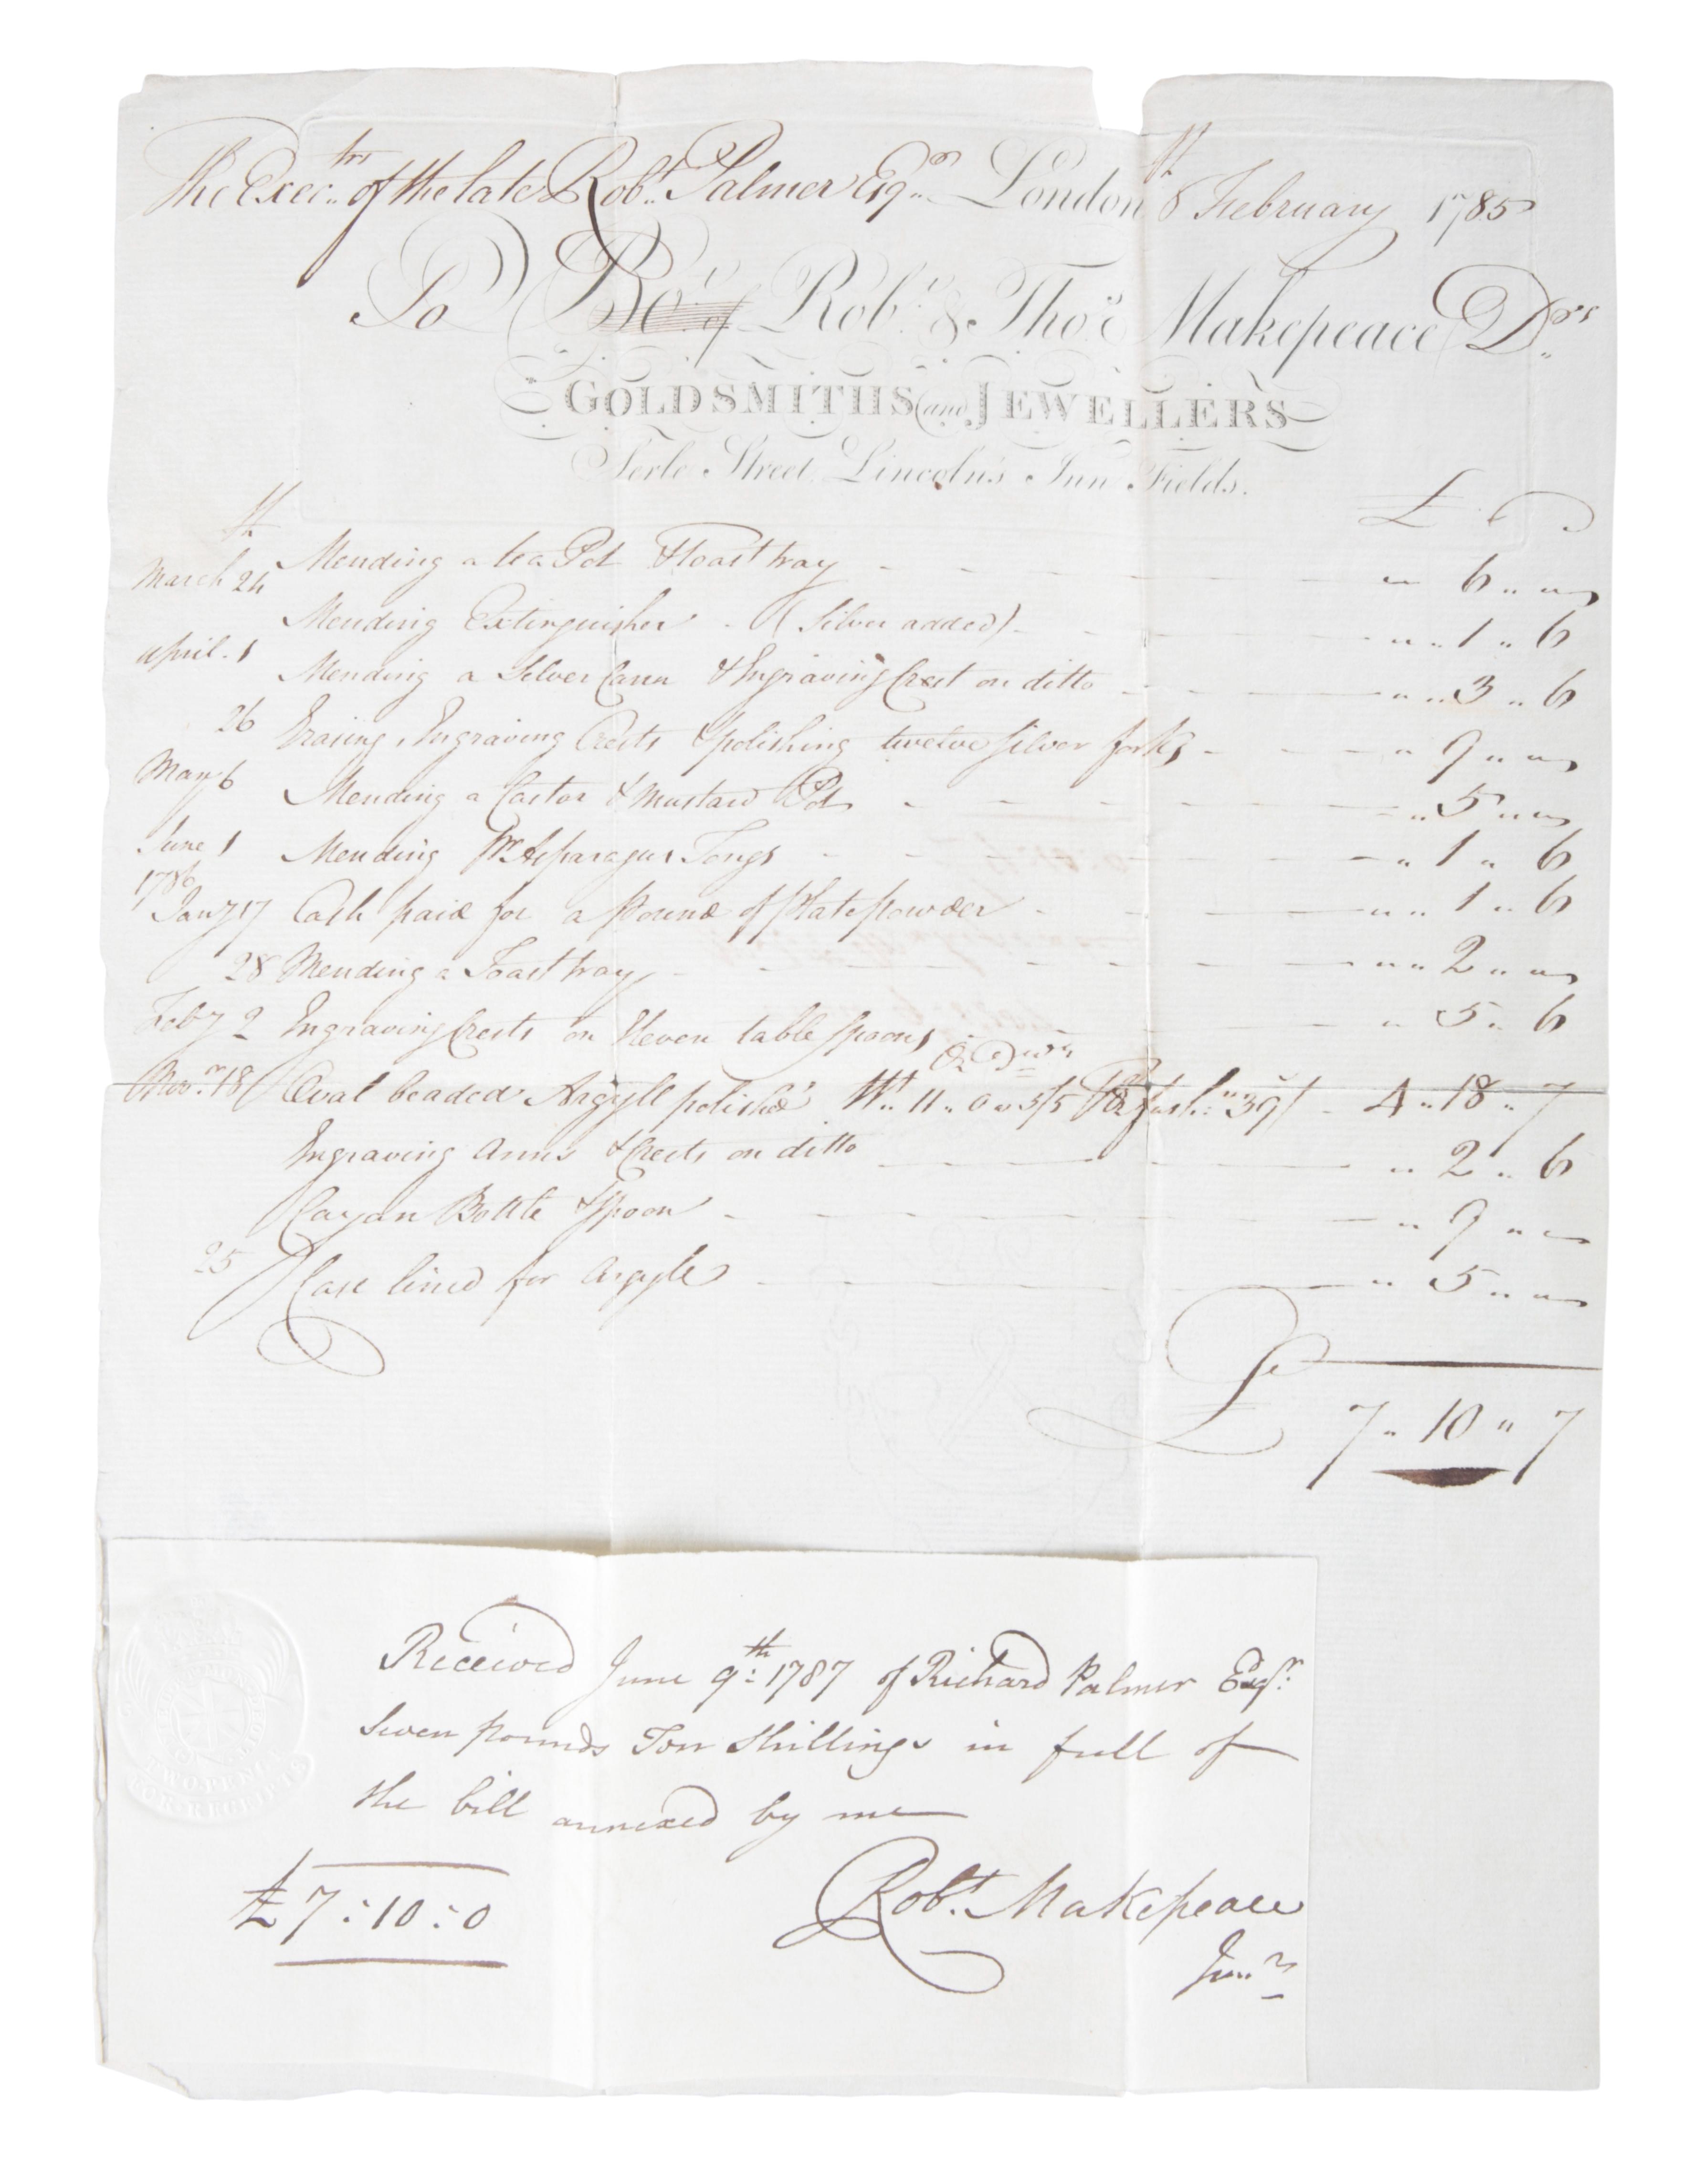 The Exec.trs of the late Robt. Palmer Esqr. London 8th February 1785
To Bot. of Robt. & Thos. Makepeace Drs.
GOLDSMITHS and JEWELLERS
Serle Street Lincoln's Inn Fields.
£ S D
March 24th Mending a tea Pot & toast tray " 6 " "
Mending Extinguisher (Silver added) " " 1 " 6
April 1 Mending a Silver Cann & Engraving Crest on ditto " " 3 " 6
26 Erasing, Engraving Crests & polishing twelve Silver forks " 9 " "
May 6 Mending a Castor & Mustard Pot " 5 " "
June 1 Mending Pr. Asparagus Tongs " 1 " 6
1786
Jany 17 Cash paid for a Pound of Plate powder " " 1 " 6
28 Mending a Toast tray " " 2 " "
Feby 2 Engraving Crests on Eleven table Spoons " 5 " 6
Oz Dwts
Novr. 18 Oval beaded Argyll polish'd Wt. 11 " 0 " 5/5 39/ 4 " 18 " 7
Engraving Arms & Crests on ditto " 2 " 6
Cayan Bottle & Spoon " 9 " "
25 Case lined for Argyle " 5 " "
£ 7 " 10 " 7
Received June 9th: 1787 of Richard Palmer Esqr.
Seven pounds Ten Shillings in full of
the bill annexed by me
£7:10:0 Robt. Makepeace
Junr.
TWOPENCE
FOR RECEIPTS